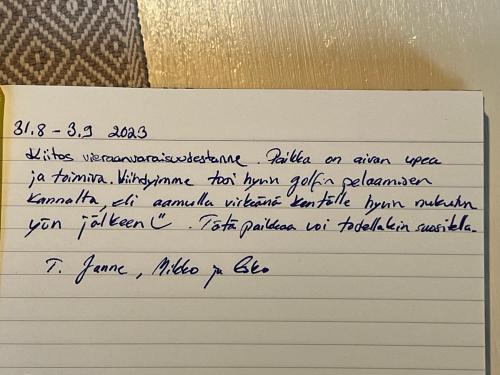 31.8 – 3.9 2023
Kiitos vieraanvaraisuudestanne. Paikka on aivan upea
ja toimiva. Viihdyimme tosi hyvin golfin pelaamisen
kannalta, eli aamulla virkeänä kentälle hyvin nukutun
yön jälkeen ü. Tätä paikkaa voi todellakin suositella.
T. Janne, Mikko ja Esko